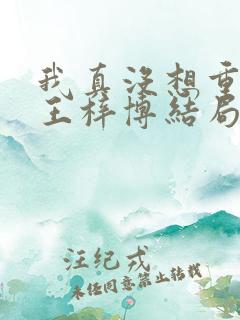 我真没想重
王梓博結局
汪纪戎
未经同意禁止转载